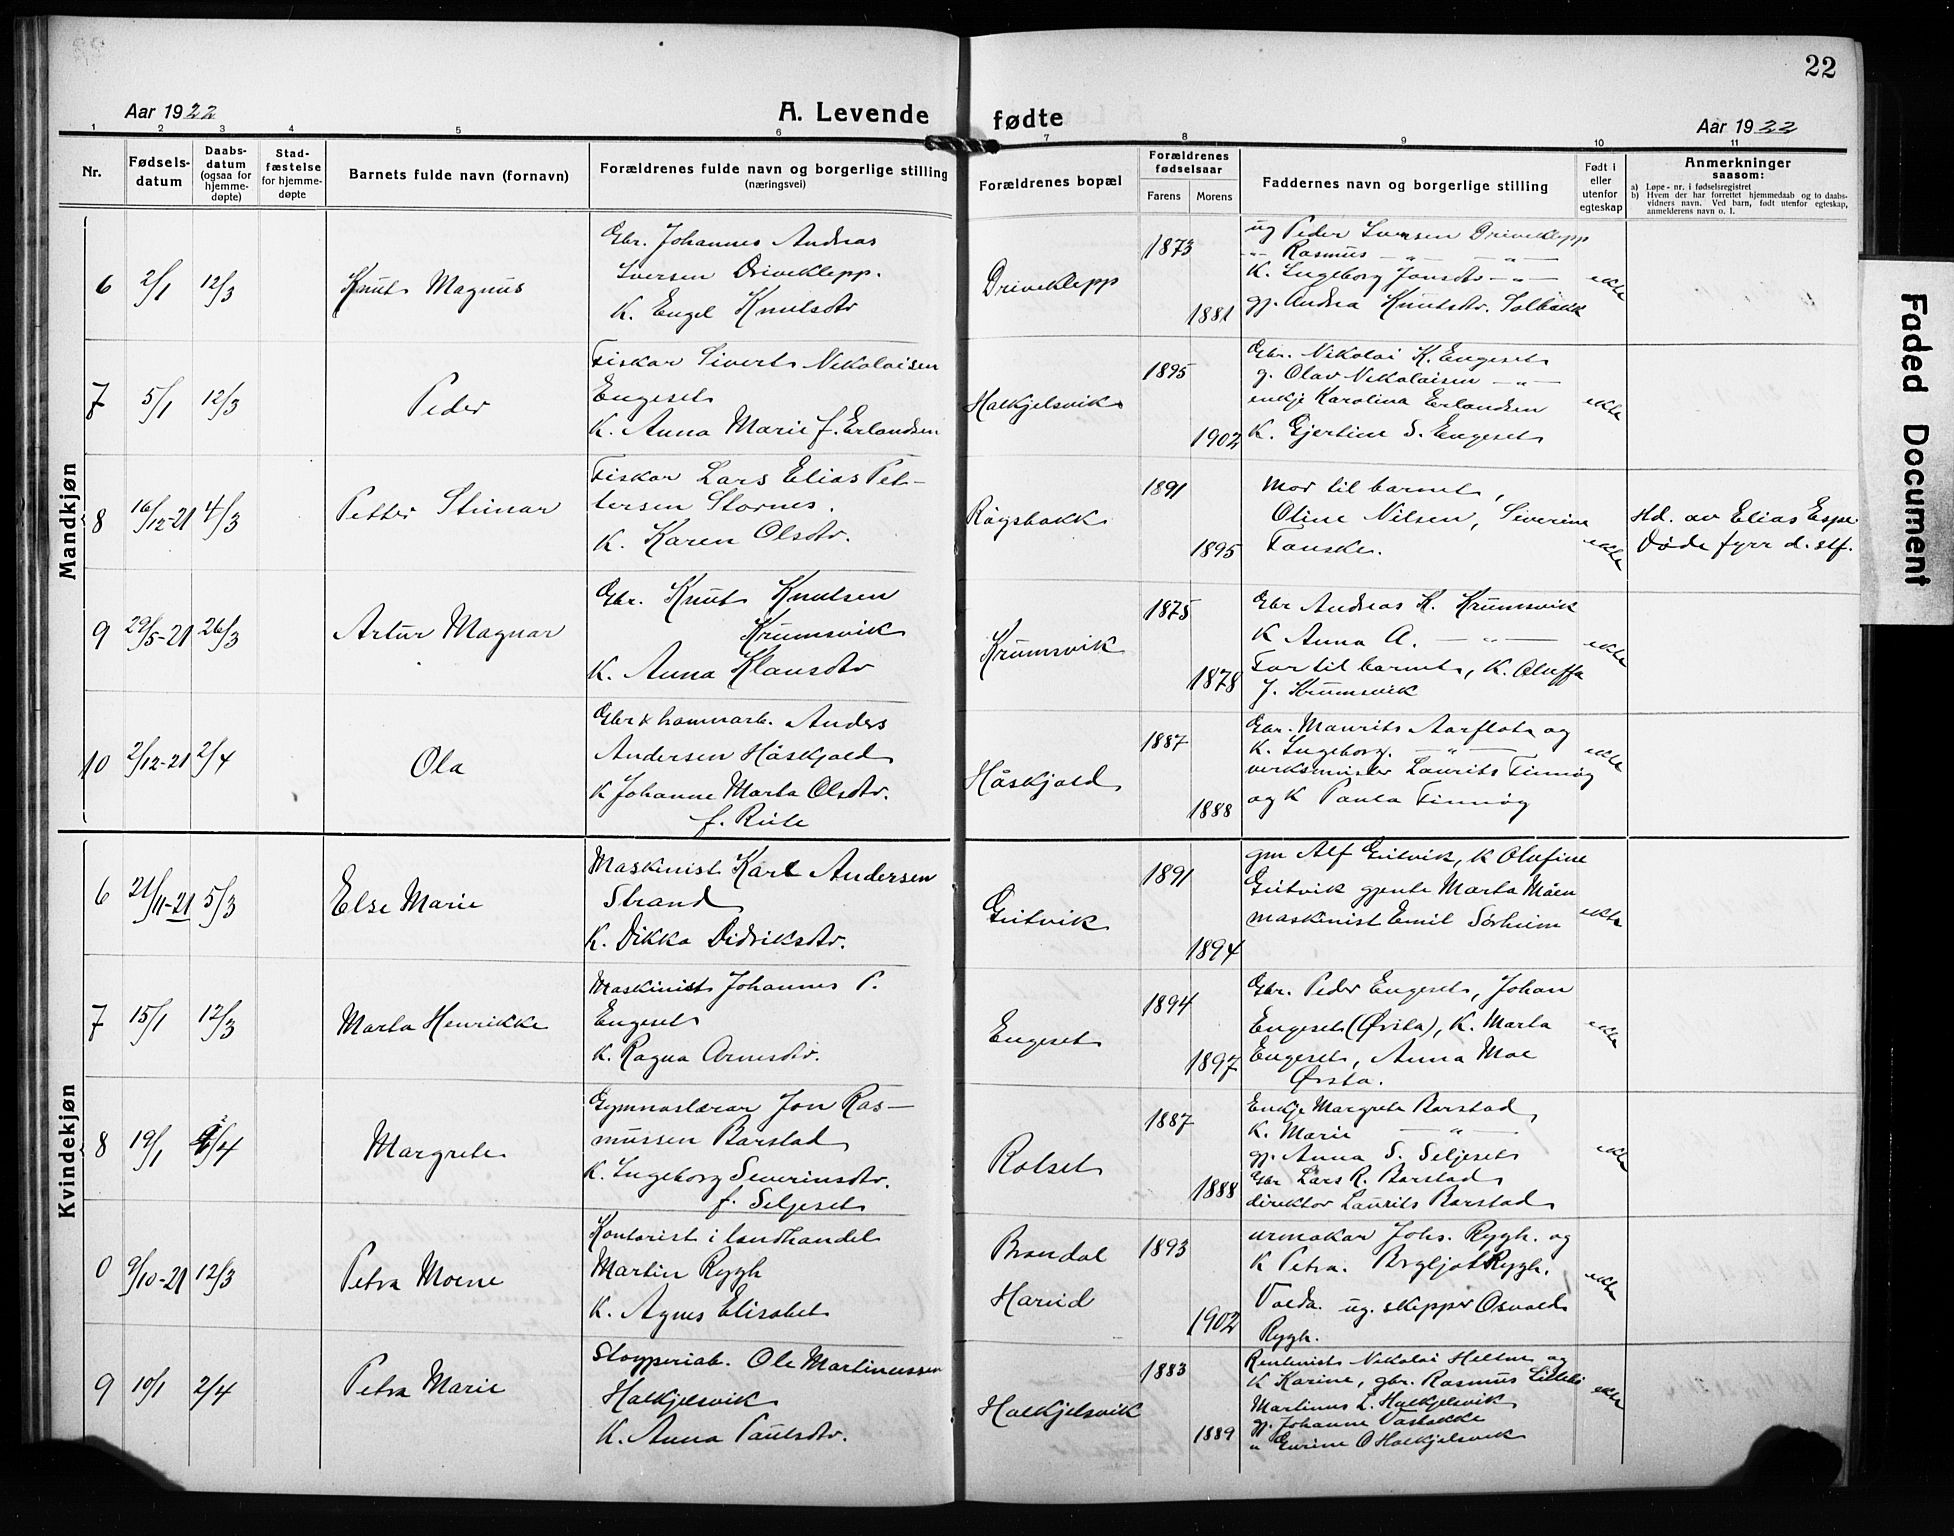 22
Aar 1922
A. Levende
fødte
Aar 1922
1 2 3 4 5 6 7 8 9 10 11
Nr.
Fødsels-
datum
Daabs-
datum
(ogsaa for
hjemme-
døpte)
Stad-
fæstelse
for hjemme-
døpte
Barnets fulde navn (fornavn)
Forældrenes fulde navn og borgerlige stilling
(næringsvei)
Forældrenes bopæl
Forældrenes
fødselsaar
Farens
Morens
Faddernes navn og borgerlige stilling
Født i
eller
utenfor
egteskap
Anmerkninger
saasom:
a) Løpe-nr. i fødselsregistret
b) Hvem der har forrettet hjemmedaab og to daabs-
vidners navn. Ved barn, født utenfor egteskap,
anmelderens navn o. l.
Mandkjøn
6 2/1 12/3
Knut Magnus
Gbr. Johannes Andreas
Iversen Driveklepp.
K. Engel Knutsdtr
Driveklepp
1873
1881
ug Peder Iversen Driveklepp
-"- Rasmus -"- -"-
K. Ingeborg Jonsdtr -"-
gj. Andrea Knutsdtr. Solbakk
ekte
7 5/1 12/3
Peder
Fiskar Sivert Nikolaisen
Engeset
K. Anna Marie f. Erlandsen
Halkjelsvik
1895
1902
Gbr. Nikolai K. Engeset
g. Olav Nikolaisen -"-
enkje Karolina Erlandsen
K. Gjertine S. Engeset
ekte
8 16/12-21 4/3
Petter Steinar
Fiskar Lars Elias Pet-
tersen Stornes.
K. Karen Olsdtr.
Rågsbakk
1891
1895
Mor til barnet,
Oline Nilsen, Severine
Fauske.
ekte
Hd. av Elias Espe
Døde fyrr d. stf.
9 29/5-21 26/3
Artur Magnar
Gbr. Knut Knutsen
Krumsvik
K. Anna Klausdtr
Krumsvik
1875
1878
Gbr Andreas K. Krumsvik
K Anna A. -"-
Far til barnet, K. Oluffa
J. Krumsvik
ekte
10 2/12-21 2/4
Ola
Gbr & hamnarb. Anders
Andersen Håskjold
K Johanne Marta Olsdtr.
f. Riite
Håskjold
1887
1888
Gbr. Maurits Aarflot og
K. Ingeborg. -"-
verksmeister Laurits Finnøy
og K Paula Finnøy
ekte
Kvindekjøn
6 21/11-21 5/3
Else Marie
Maskinist Karl Andersen
Strand
K. Dikka Didriksdtr.
Geitvik
1891
1894
gm Alf Geitvik, K Olufine
Geitvik gjente Marta Måen
maskinist Emil Sørheim
ekte
7 15/1 12/3
Marta Henrikke
Maskinist Johannes P.
Engeset
K. Ragna Arnesdtr.
Engeset
1894
1897
Gbr. Peder Engeset, Johan
Engeset (Ørsta), K. Marta
Engeset, Anna Moe
Ørsta.
ekte
8 19/1 2/4
Margrete
Gymnaslærar Jon Ras-
mussen Barstad
K. Ingeborg Severinsdtr.
f. Seljeset
Rotset
1887
1888
Enkje Margrete Barstad
K. Marie -"-
gj. Anna S. Seljeset
Gbr Lars R. Barstad
direktør Laurits Barstad
ekte
0 9/10-21 12/3
Petra Moene
Kontorist i landhandel
Martin Rygh
K. Agnes Elisabet
Brandal
Hareid
1893
1902
urmakar Johs. Rygh. og
K Petra. Bergljot Rygh.
Volda. ug. skipper Osvald
Rygh.
ekte
9 10/1 2/4
Petra Marie
Støyperiab. Ole Martinussen
Halkjelsvik
K. Anna Paulsdtr.
Halkjelsvik
1883
1889
Rentenist Nikolai Heltne og
K Karine, gbr. Rasmus
Martinus L. Halkjelsvik
gj. Johanne Vassbakke
" Gurine O Halkjelsvik
ekte
Faded Document